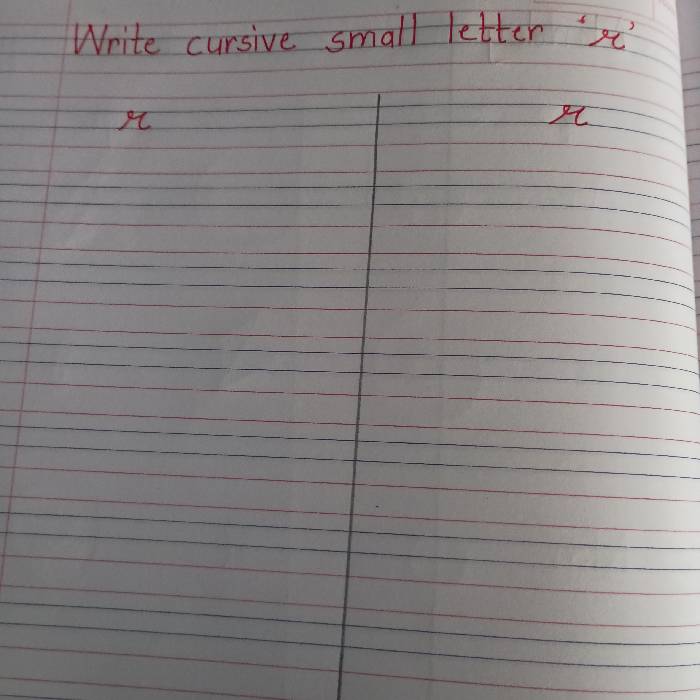 Write cursive small letter 'r'
r r